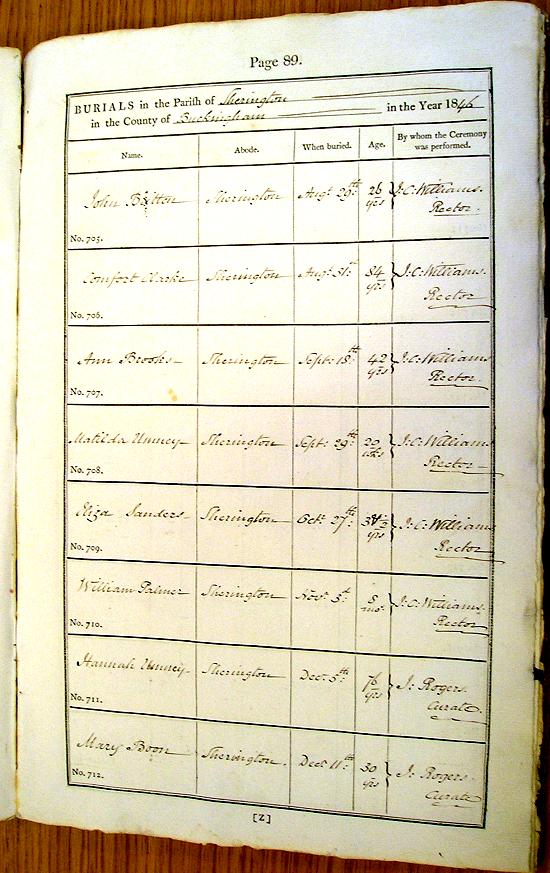 Page 89.
BURIALS in the Parish of Sherington
in the County of Buckingham in the Year 1846
Name. Abode. When buried. Age. By whom the Ceremony was performed.
John Britton Sherington Augt. 29th: 26 yrs J: C: Williams. Rector.
No. 705.
Comfort Clarke Sherington Augt. 31st: 84 yrs J: C: Williams. Rector
No. 706.
Ann Brooks Sherington Sept: 18th: 42 yrs J: C: Williams Rector.
No. 707.
Matilda Umney Sherington Sept: 29th: 20 wks J: C: Williams Rector
No. 708.
Eliza Sanders Sherington Oct: 27th: yrs J: C: Williams Rector
No. 709.
William Palmer Sherington Novr. 5th: 5 mos. J: C: Williams. Rector
No. 710.
Hannah Umney Sherington Dec: 5th: 76 yrs J: Rogers. Curate.
No. 711.
Mary Boon Sherington. Dec: 11th: 30 yrs J: Rogers. Curate
No. 712.
[Z]